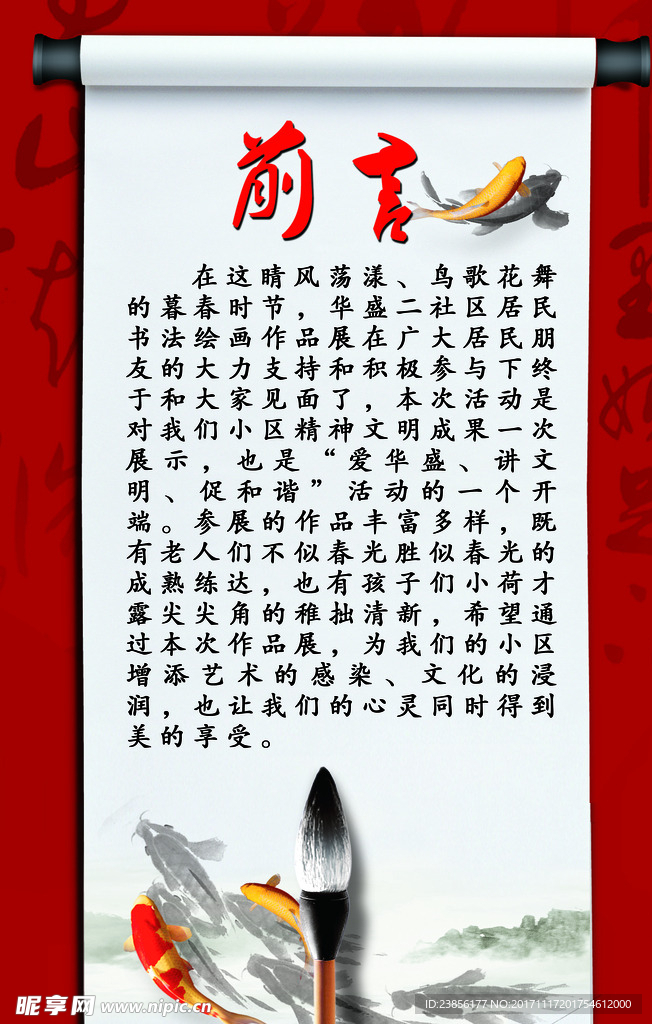 前言
在这晴风荡漾、鸟歌花舞
的暮春时节，华盛二社区居民
书法绘画作品展在广大居民朋
友的大力支持和积极参与下终
于和大家见面了，本次活动是
对我们小区精神文明成果一次
展示，也是“爱华盛、讲文
明、促和谐”活动的一个开
端。参展的作品丰富多样，既
有老人们不似春光胜似春光的
成熟练达，也有孩子们小荷才
露尖尖角的稚拙清新，希望通
过本次作品展，为我们的小区
增添艺术的感染、文化的浸
润，也让我们的心灵同时得到
美的享受。
昵享网 www.nipic.cn
ID:23856177 NO:20171117201754612000